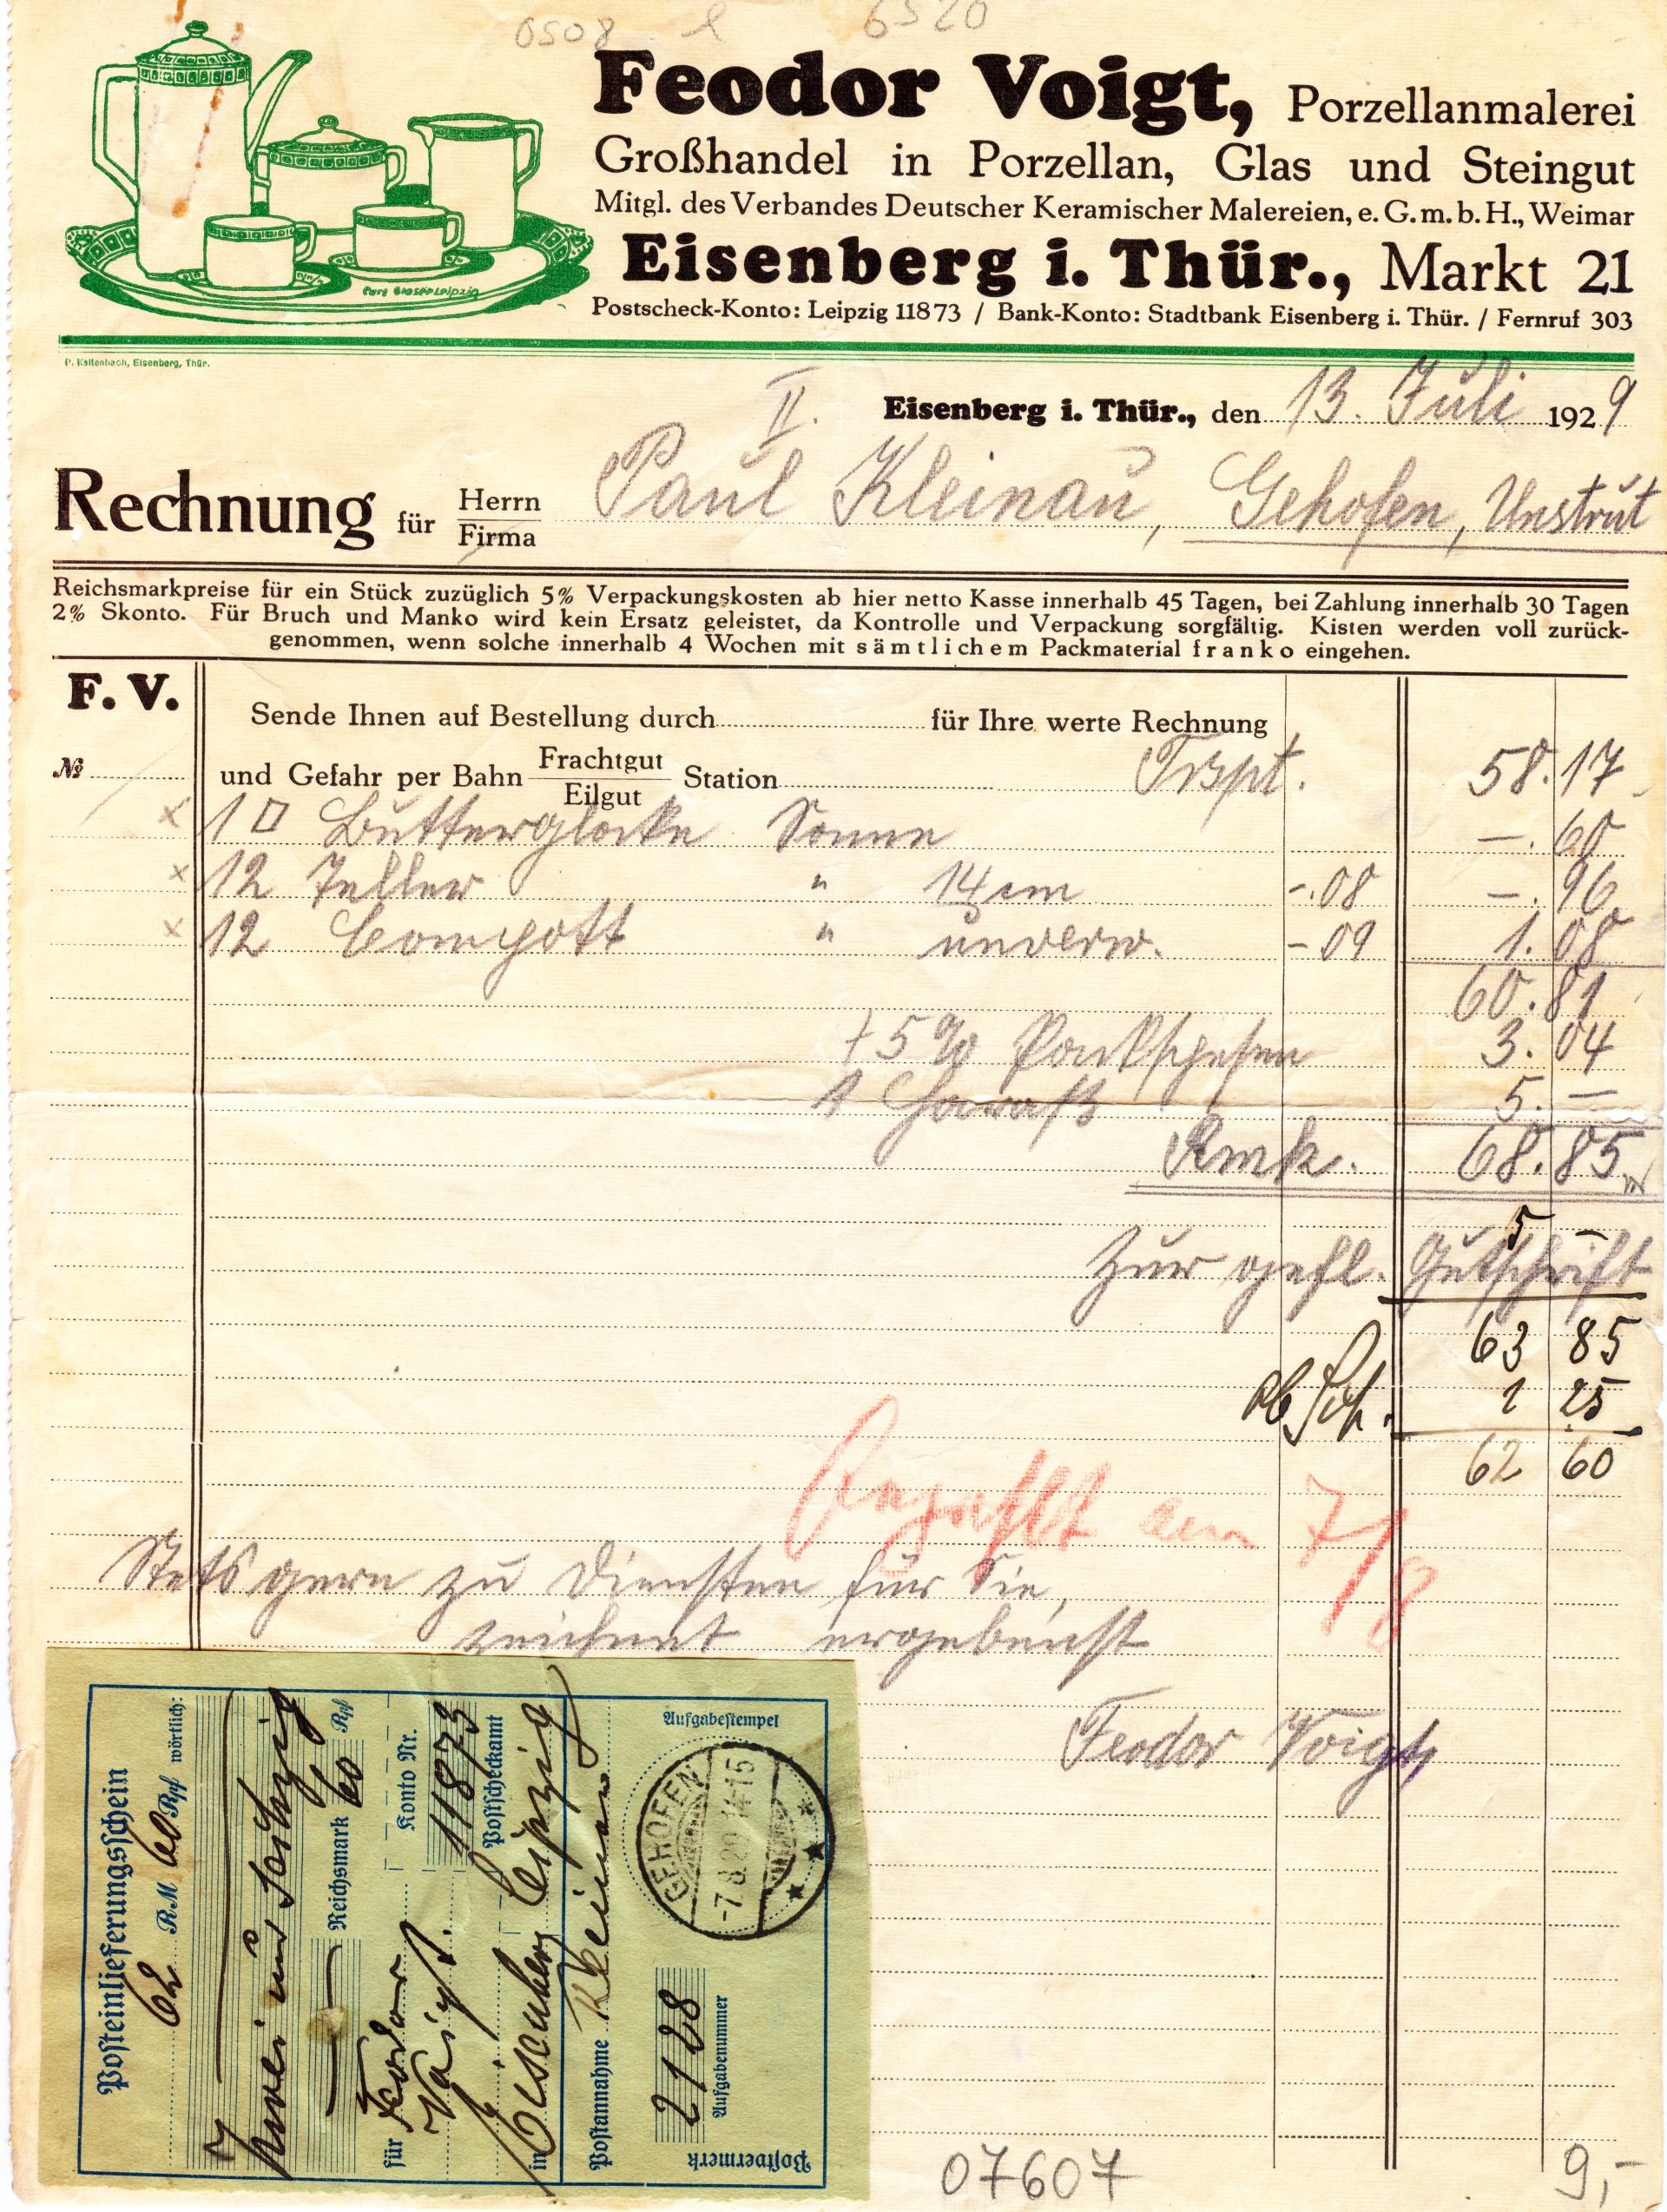 0508 6520
Feodor Voigt, Porzellanmalerei
Großhandel in Porzellan, Glas und Steingut
Mitgl. des Verbandes Deutscher Keramischer Malereien, e. G. m. b. H., Weimar
Eisenberg i. Thür., Markt 21
Postscheck-Konto: Leipzig 11873 / Bank-Konto: Stadtbank Eisenberg i. Thür. / Fernruf 303
P. Kaltenbach, Eisenberg, Thür.
II. Eisenberg i. Thür., den 13. Juli 1929
Rechnung für Herrn Firma Paul Kleinau, Gehofen, Unstrut
Reichsmarkpreise für ein Stück zuzüglich 5% Verpackungskosten ab hier netto Kasse innerhalb 45 Tagen, bei Zahlung innerhalb 30 Tagen
2% Skonto. Für Bruch und Manko wird kein Ersatz geleistet, da Kontrolle und Verpackung sorgfältig. Kisten werden voll zurück-
genommen, wenn solche innerhalb 4 Wochen mit sämtlichem Packmaterial franko eingehen.
F. V.
Sende Ihnen auf Bestellung durch für Ihre werte Rechnung
№ und Gefahr per Bahn Frachtgut Eilgut Station Trspt. 58.17
× 1 □ Butterglocke Sonne –.60
× 12 Teller " 14 cm -.08 –.96
× 12 Compott " underw. -09 1.08
60.81
+ 5% Packspesen 3.04
1 Haraß 5.–
Rmk. 68.85
5 –
Zur gefl. Gutschrift
63 85
ab 1 25
62 60
Bezahlt am 7/8
Stets gern zu Diensten für Sie,
zeichnet ergebenst
Feodor Voigt
Posteinlieferungsschein
62 RM 60 Rpf wörtlich:
Zwei und sechzig
Reichsmark 60 Rpf
für Feodor Voigt. Konto Nr. 11873
in Eisenberg Postscheckamt Leipzig
Postannahme Kleinau
2128
Aufgabenummer
Postvermerk
Aufgabestempel
GEHOFEN
-7.8.29 14-15
07607 9,-